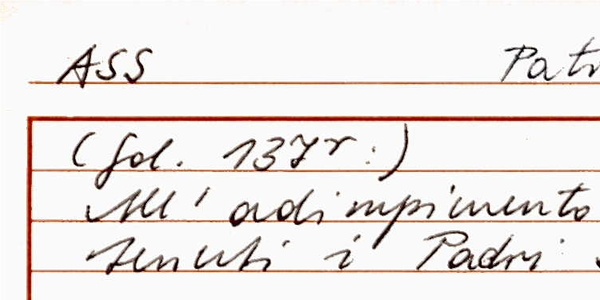 ASS Patr
(fol. 137r:)
All' adimpimento
tenuti i Padri